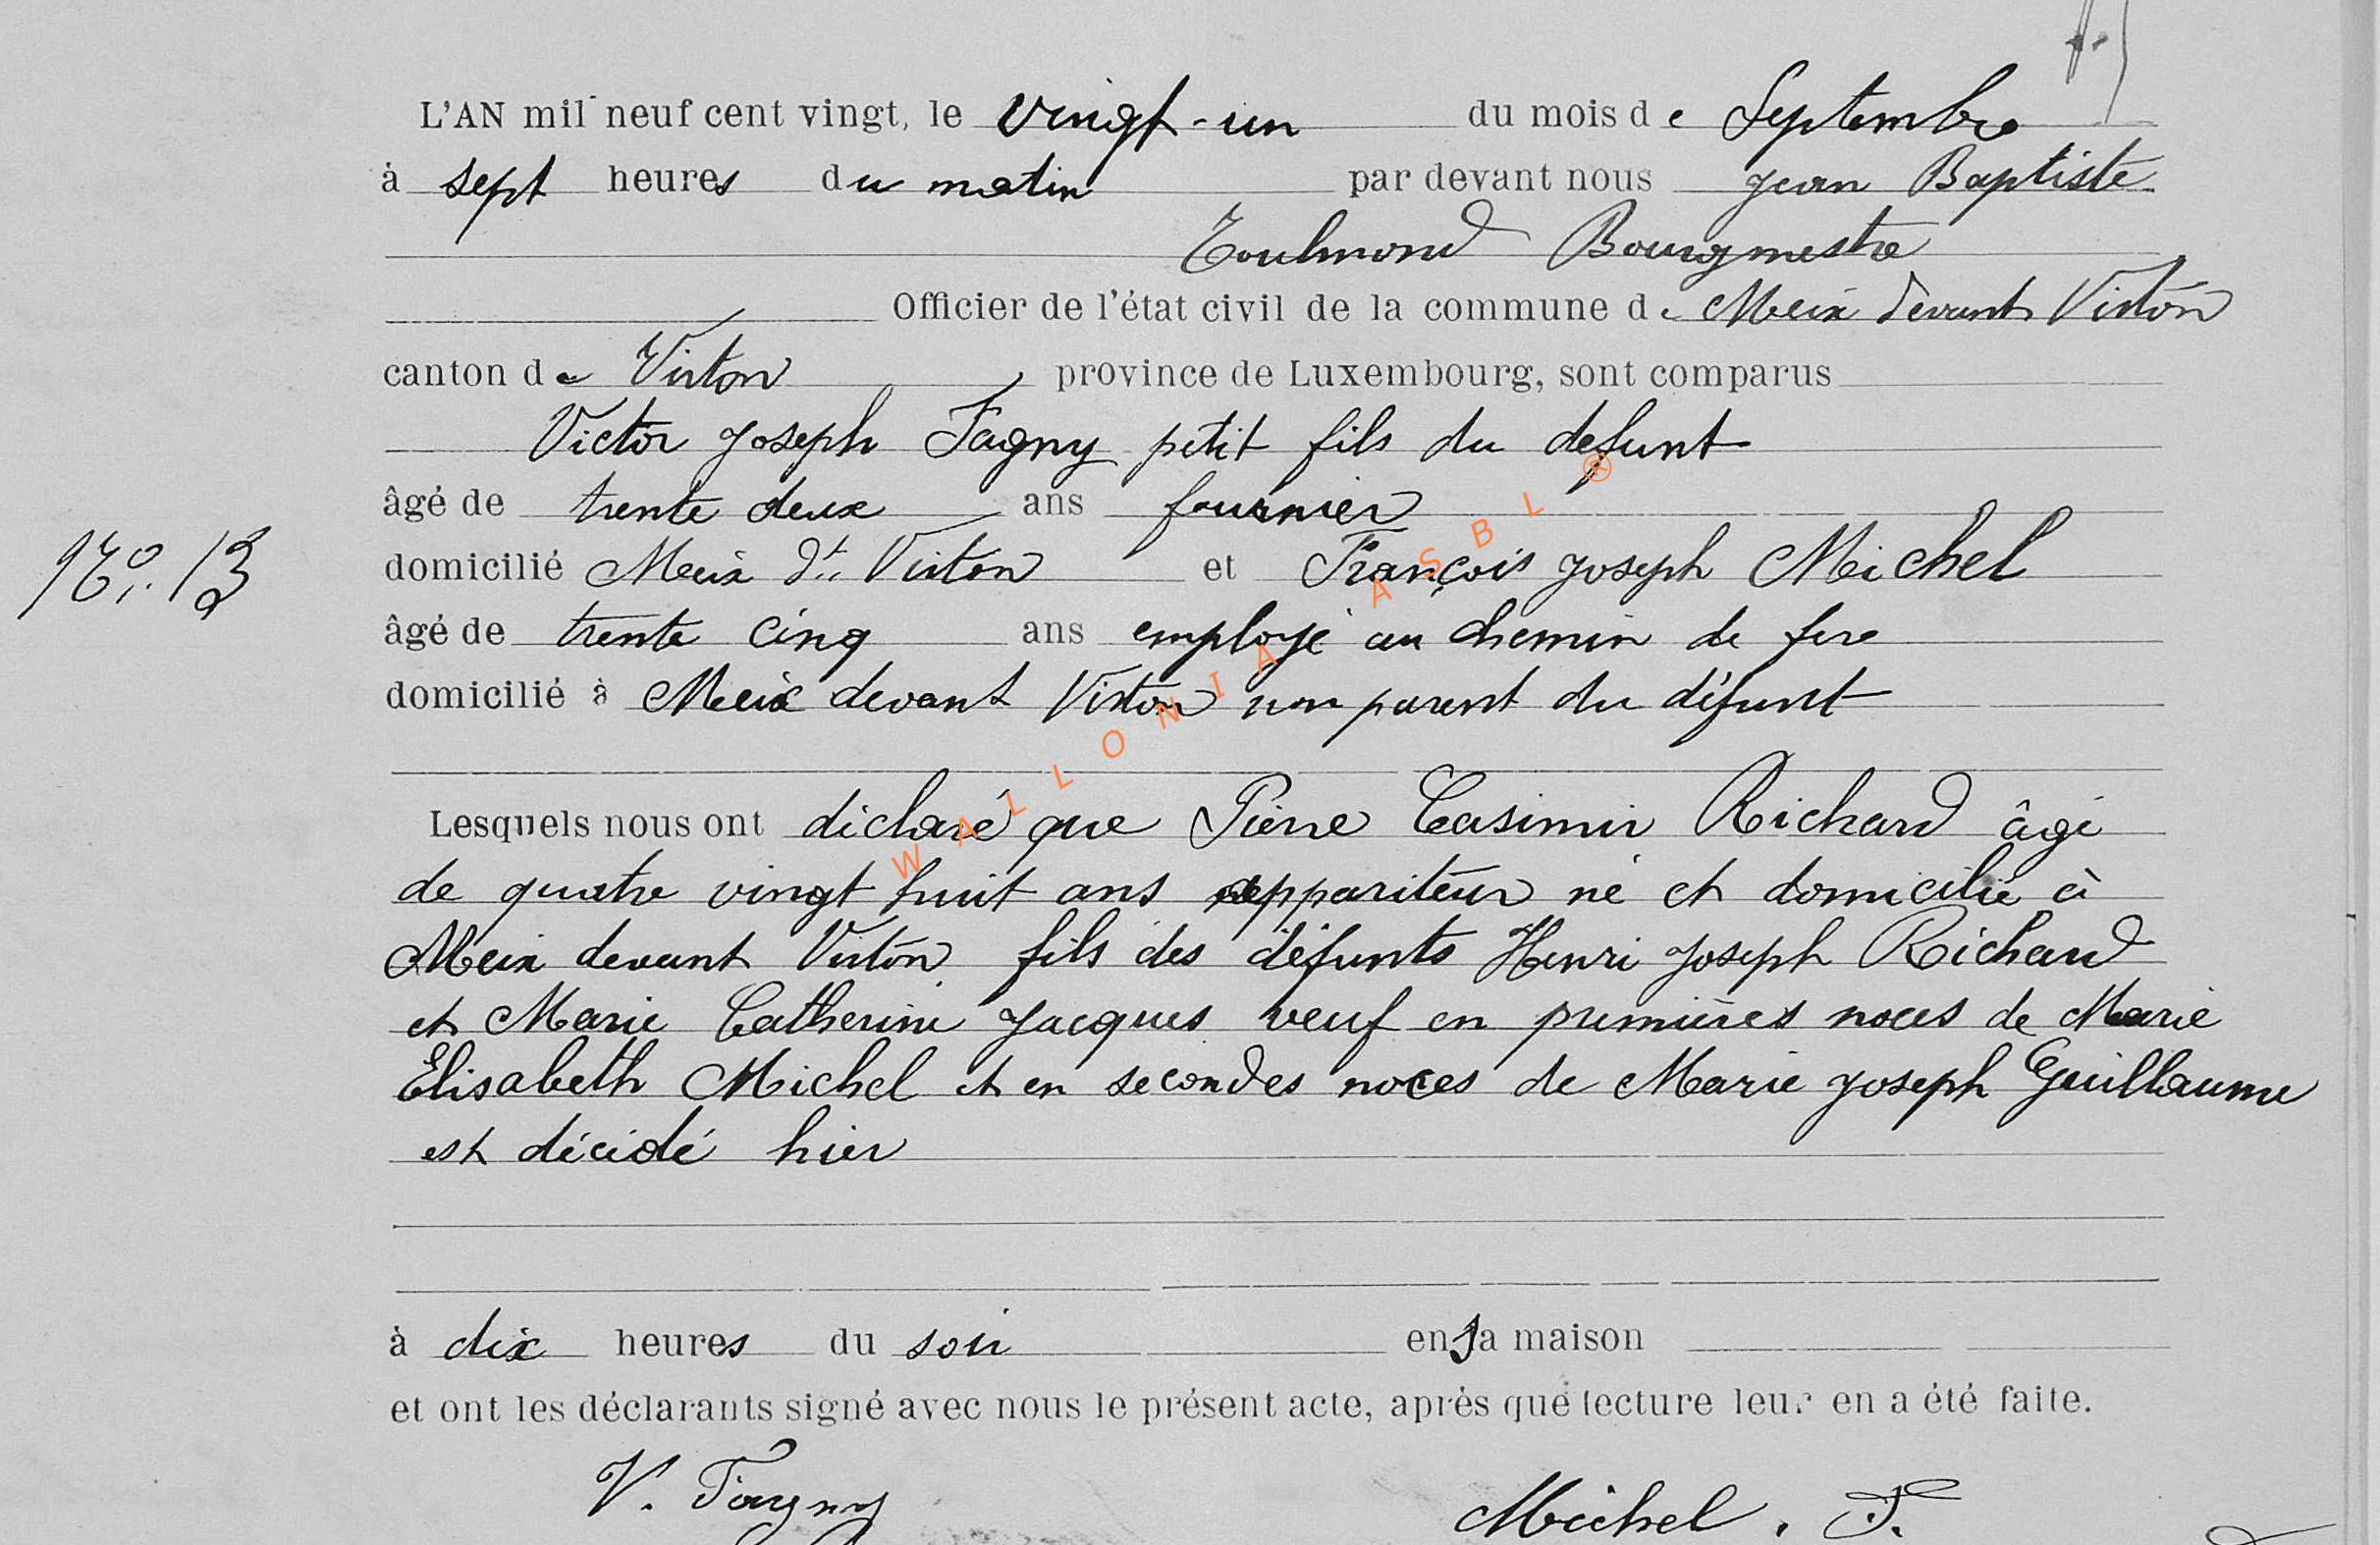 L'AN mil neuf cent vingt, le vingt-un du mois de Septembre
à sept heures du matin par devant nous Jean Baptiste
Toulmond Bourgmestre
Officier de l'état civil de la commune de Meix devant Virton
canton de Virton province de Luxembourg, sont comparus
Victor Joseph Fagny petit fils du defunt
âgé de trente deux ans fournier
domicilié Meix dt Virton et François Joseph Michel
N° 13
âgé de trente cinq ans employé au chemin de fer
domicilié à Meix devant Virton non parent du défunt
WALLONIA ASBL ®
Lesquels nous ont déclaré que Pierre Casimir Richard âgé
de quatre vingt huit ans appariteur né et domicilié à
Meix devant Virton fils des défunts Henri Joseph Richard
et Marie Catherine Jacques veuf en premières noces de Marie
Elisabeth Michel et en secondes noces de Marie Joseph Guillaume
est décédé hier
à dix heures du soir en sa maison
et ont les déclarants signé avec nous le présent acte, après que lecture leur en a été faite.
V. Fagny Michel. F.